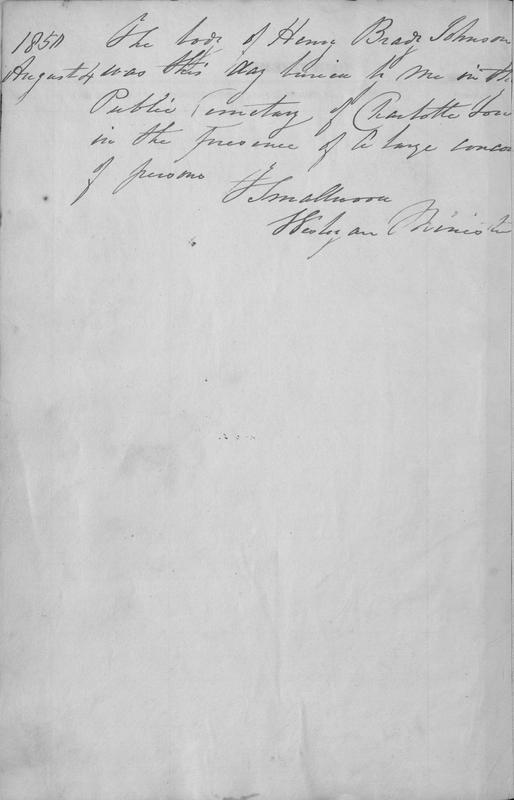 1850 The body of Henry Brady Johnson
August 4 was this day buried by me in the
Public Cemetary of Charlotte Town
in the Presence of a large concou
of persons
F Smallwood
Wesleyan Ministe